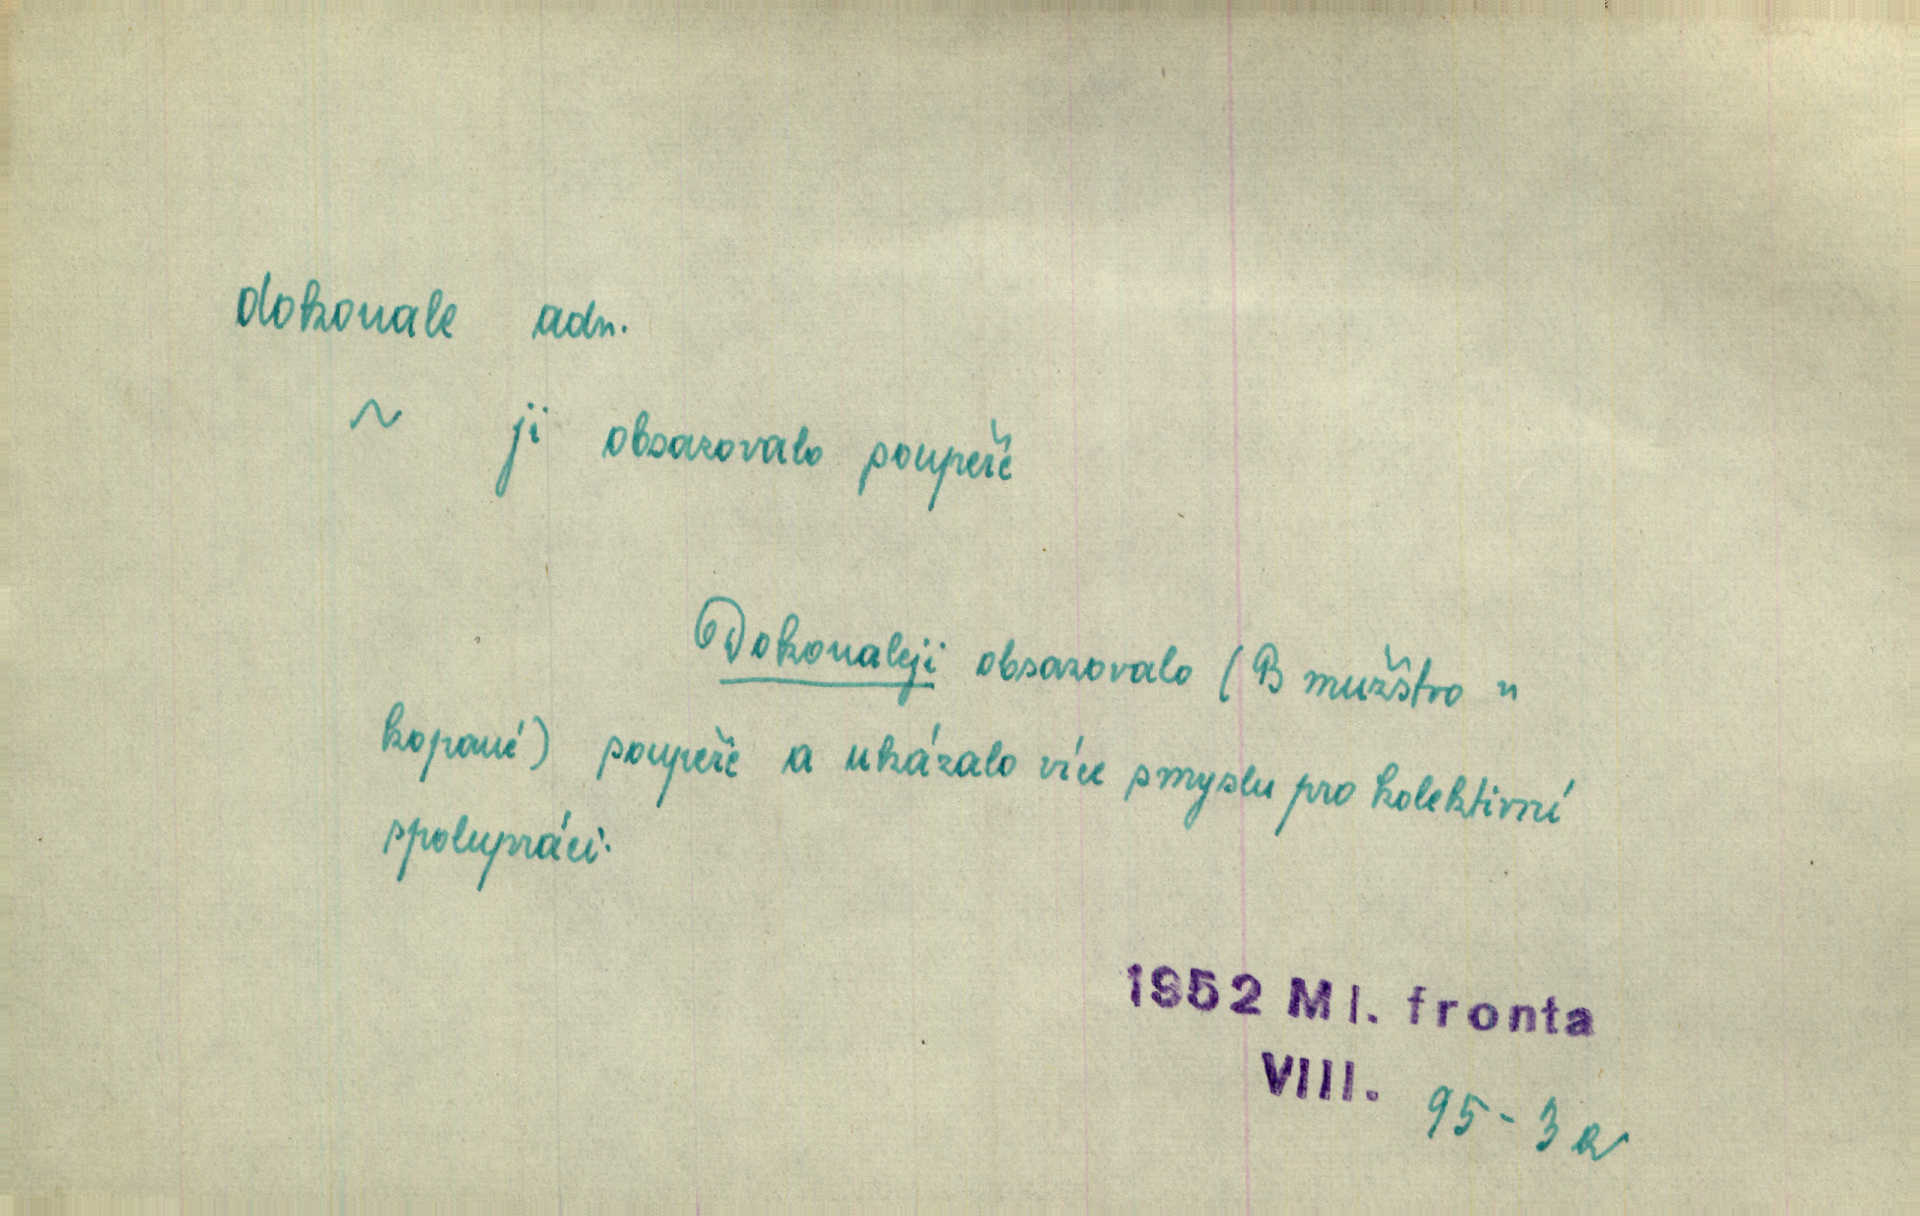 dokonale adv.
~ ji obsazovalo soupeře
Dokonaleji obsazovalo (B mužstvo v
kopané) soupeře a ukázalo více smyslu pro kolektivní
spolupráci.
1952 Ml. fronta
VIII. 95-3a